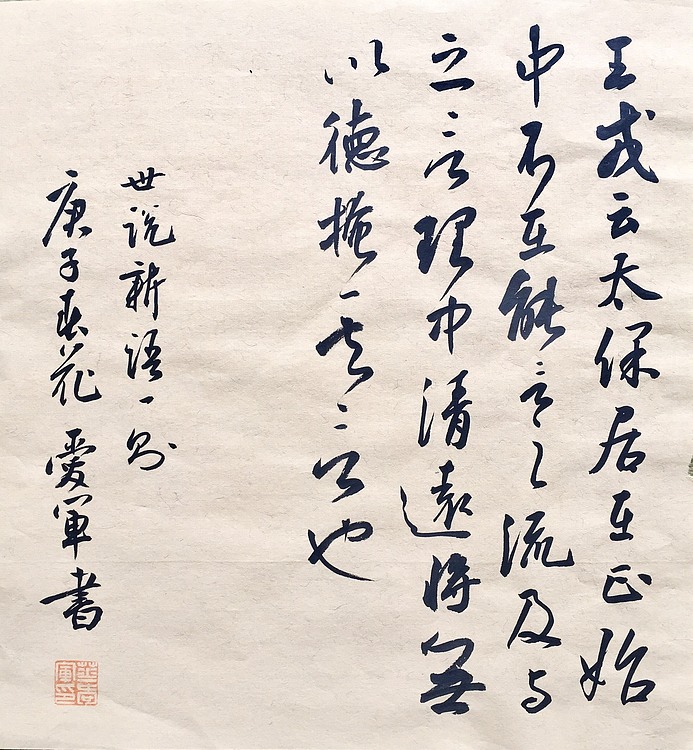 王戎云太保居在正始
中不在能言之流及与
之言理中清遠将無
以德掩其言也
世说新语一则
庚子春花愛軍書